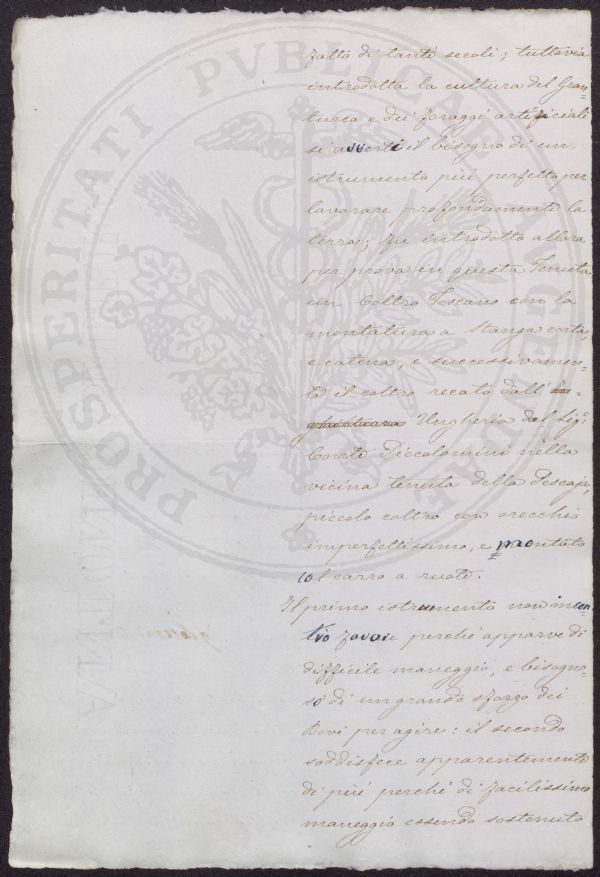 fatto di tanti secoli; tuttavia
introdotta la cultura del Gran=
turco e dei foraggi artificiali
si avverti il bisogno di un
istrumento più perfetto per
lavorare profondamente la
terra; fu introdotto allora
per prova in questa Tenuta
un Coltro Toscano con la
montatura a Stanga corta,
e catena, e successivamen=
te il coltro recato dall'
Ungheria del Sigr.
Conte Piccolomini nella
vicina tenuta della Pescaja,
piccolo coltro con orecchio
imperfettissimo, e montato
col carro a ruote.
Il primo istrumento non incon=
trò favore perché apparve di
difficile maneggio, e bisogno=
so di un grande sforzo dei
Bovi per agire: il secondo
soddisfece apparentemente
di più perché di facilissimo
maneggio essendo sostenuto
PROSPERITATI PVBLICAE AVGENDAE